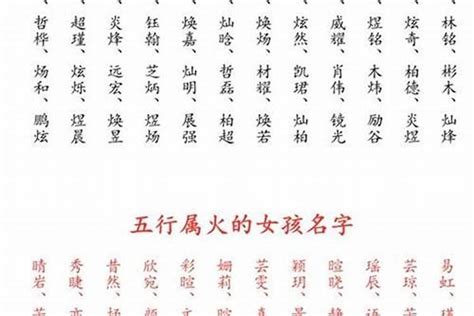 、林铭、彬木、灿烽
、炫奇、柏德、炎煜
、煜铭、木炜、励谷
、威耀、肖伟、镜光
、炫然、凯珺、灿金
、焕炀、材耀、焕若
、灿晗、哲磊、柏超
、焕嘉、灿明、展强
、钰翰、芝炳、煜炀
、炎烽、远宏、焕昱
、超瑾、炫烁、煜晨
、哲桦、炀和、鹏炫
五行属火的女孩名字
易虹、
芸琼、
瑶辰、
暄晓、
颖玥、
芸雯、
姗莉、
彩暄、
欣宛、
昔然、
秀睫、
晴岩、